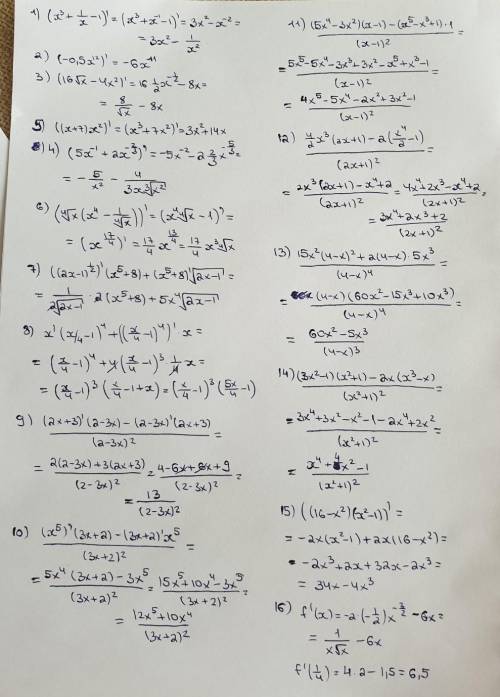 1) (x³ + 1/x - 1)' = (x³ + x⁻¹ - 1)' = 3x² - x⁻² =
= 3x² - 1/x²
2) (-0,5x¹²)' = -6x¹¹
3) (16√x - 4x²)' = 16 1/2 x^(-1/2) - 8x =
= 8/√x - 8x
5) ((x+7)x²)' = (x³ + 7x²)' = 3x² + 14x
4) (5x⁻¹ + 2x^(-2/3))' = -5x⁻² - 2 2/3 x^(-5/3) =
= - 5/x² - 4/(3x ∛x²)
6) (⁴√x (x⁴ - 1/⁴√x))' = (x⁴ ⁴√x - 1)' =
= (x^(17/4))' = 17/4 x^(13/4) = 17/4 x³ ⁴√x
7) ((2x-1)^(1/2))' (x⁵+8) + (x⁵+8)' √(2x-1) =
= 1/(2√(2x-1)) · 2 (x⁵+8) + 5x⁴ √(2x-1)
8) x' (x/4 - 1)⁴ + ((x/4 - 1)⁴)' · x =
= (x/4 - 1)⁴ + 4 (x/4 - 1)³ · 1/4 x =
= (x/4 - 1)³ (x/4 - 1 + x) = (x/4 - 1)³ (5x/4 - 1)
9) ((2x+3)' (2-3x) - (2-3x)' (2x+3))/(2-3x)² =
= (2(2-3x) + 3(2x+3))/(2-3x)² = (4-6x+6x+9)/(2-3x)² =
= 13/(2-3x)²
10) ((x⁵)' (3x+2) - (3x+2)' x⁵)/(3x+2)² =
= (5x⁴ (3x+2) - 3x⁵)/(3x+2)² = (15x⁵ + 10x⁴ - 3x⁵)/(3x+2)² =
= (12x⁵ + 10x⁴)/(3x+2)²
11) ((5x⁴ - 3x²)(x-1) - (x⁵ - x³ + 1) · 1)/(x-1)² =
= (5x⁵ - 5x⁴ - 3x³ + 3x² - x⁵ + x³ - 1)/(x-1)²
= (4x⁵ - 5x⁴ - 2x³ + 3x² - 1)/(x-1)²
12) (4/2 x³ (2x+1) - 2(x⁴/2 - 1))/(2x+1)² =
= (2x³ (2x+1) - x⁴ + 2)/(2x+1)² = (4x⁴ + 2x³ - x⁴ + 2)/(2x+1)² =
= (3x⁴ + 2x³ + 2)/(2x+1)²
13) (15x² (4-x)² + 2(4-x) · 5x³)/(4-x)⁴ =
= (4-x)(60x² - 15x³ + 10x³)/(4-x)⁴ =
= (60x² - 5x³)/(4-x)³
14) ((3x²-1)(x²+1) - 2x(x³-x))/(x²+1)² =
= (3x⁴ + 3x² - x² - 1 - 2x⁴ + 2x²)/(x²+1)² =
= (x⁴ + 4x² - 1)/(x²+1)²
15) ((16-x²)(x²-1))' =
= -2x(x²-1) + 2x(16-x²) =
= -2x³ + 2x + 32x - 2x³ =
= 34x - 4x³
16) f'(x) = -2 · (-1/2) x^(-3/2) - 6x =
= 1/(x√x) - 6x
f'(1/4) = 4 · 2 - 1,5 = 6,5